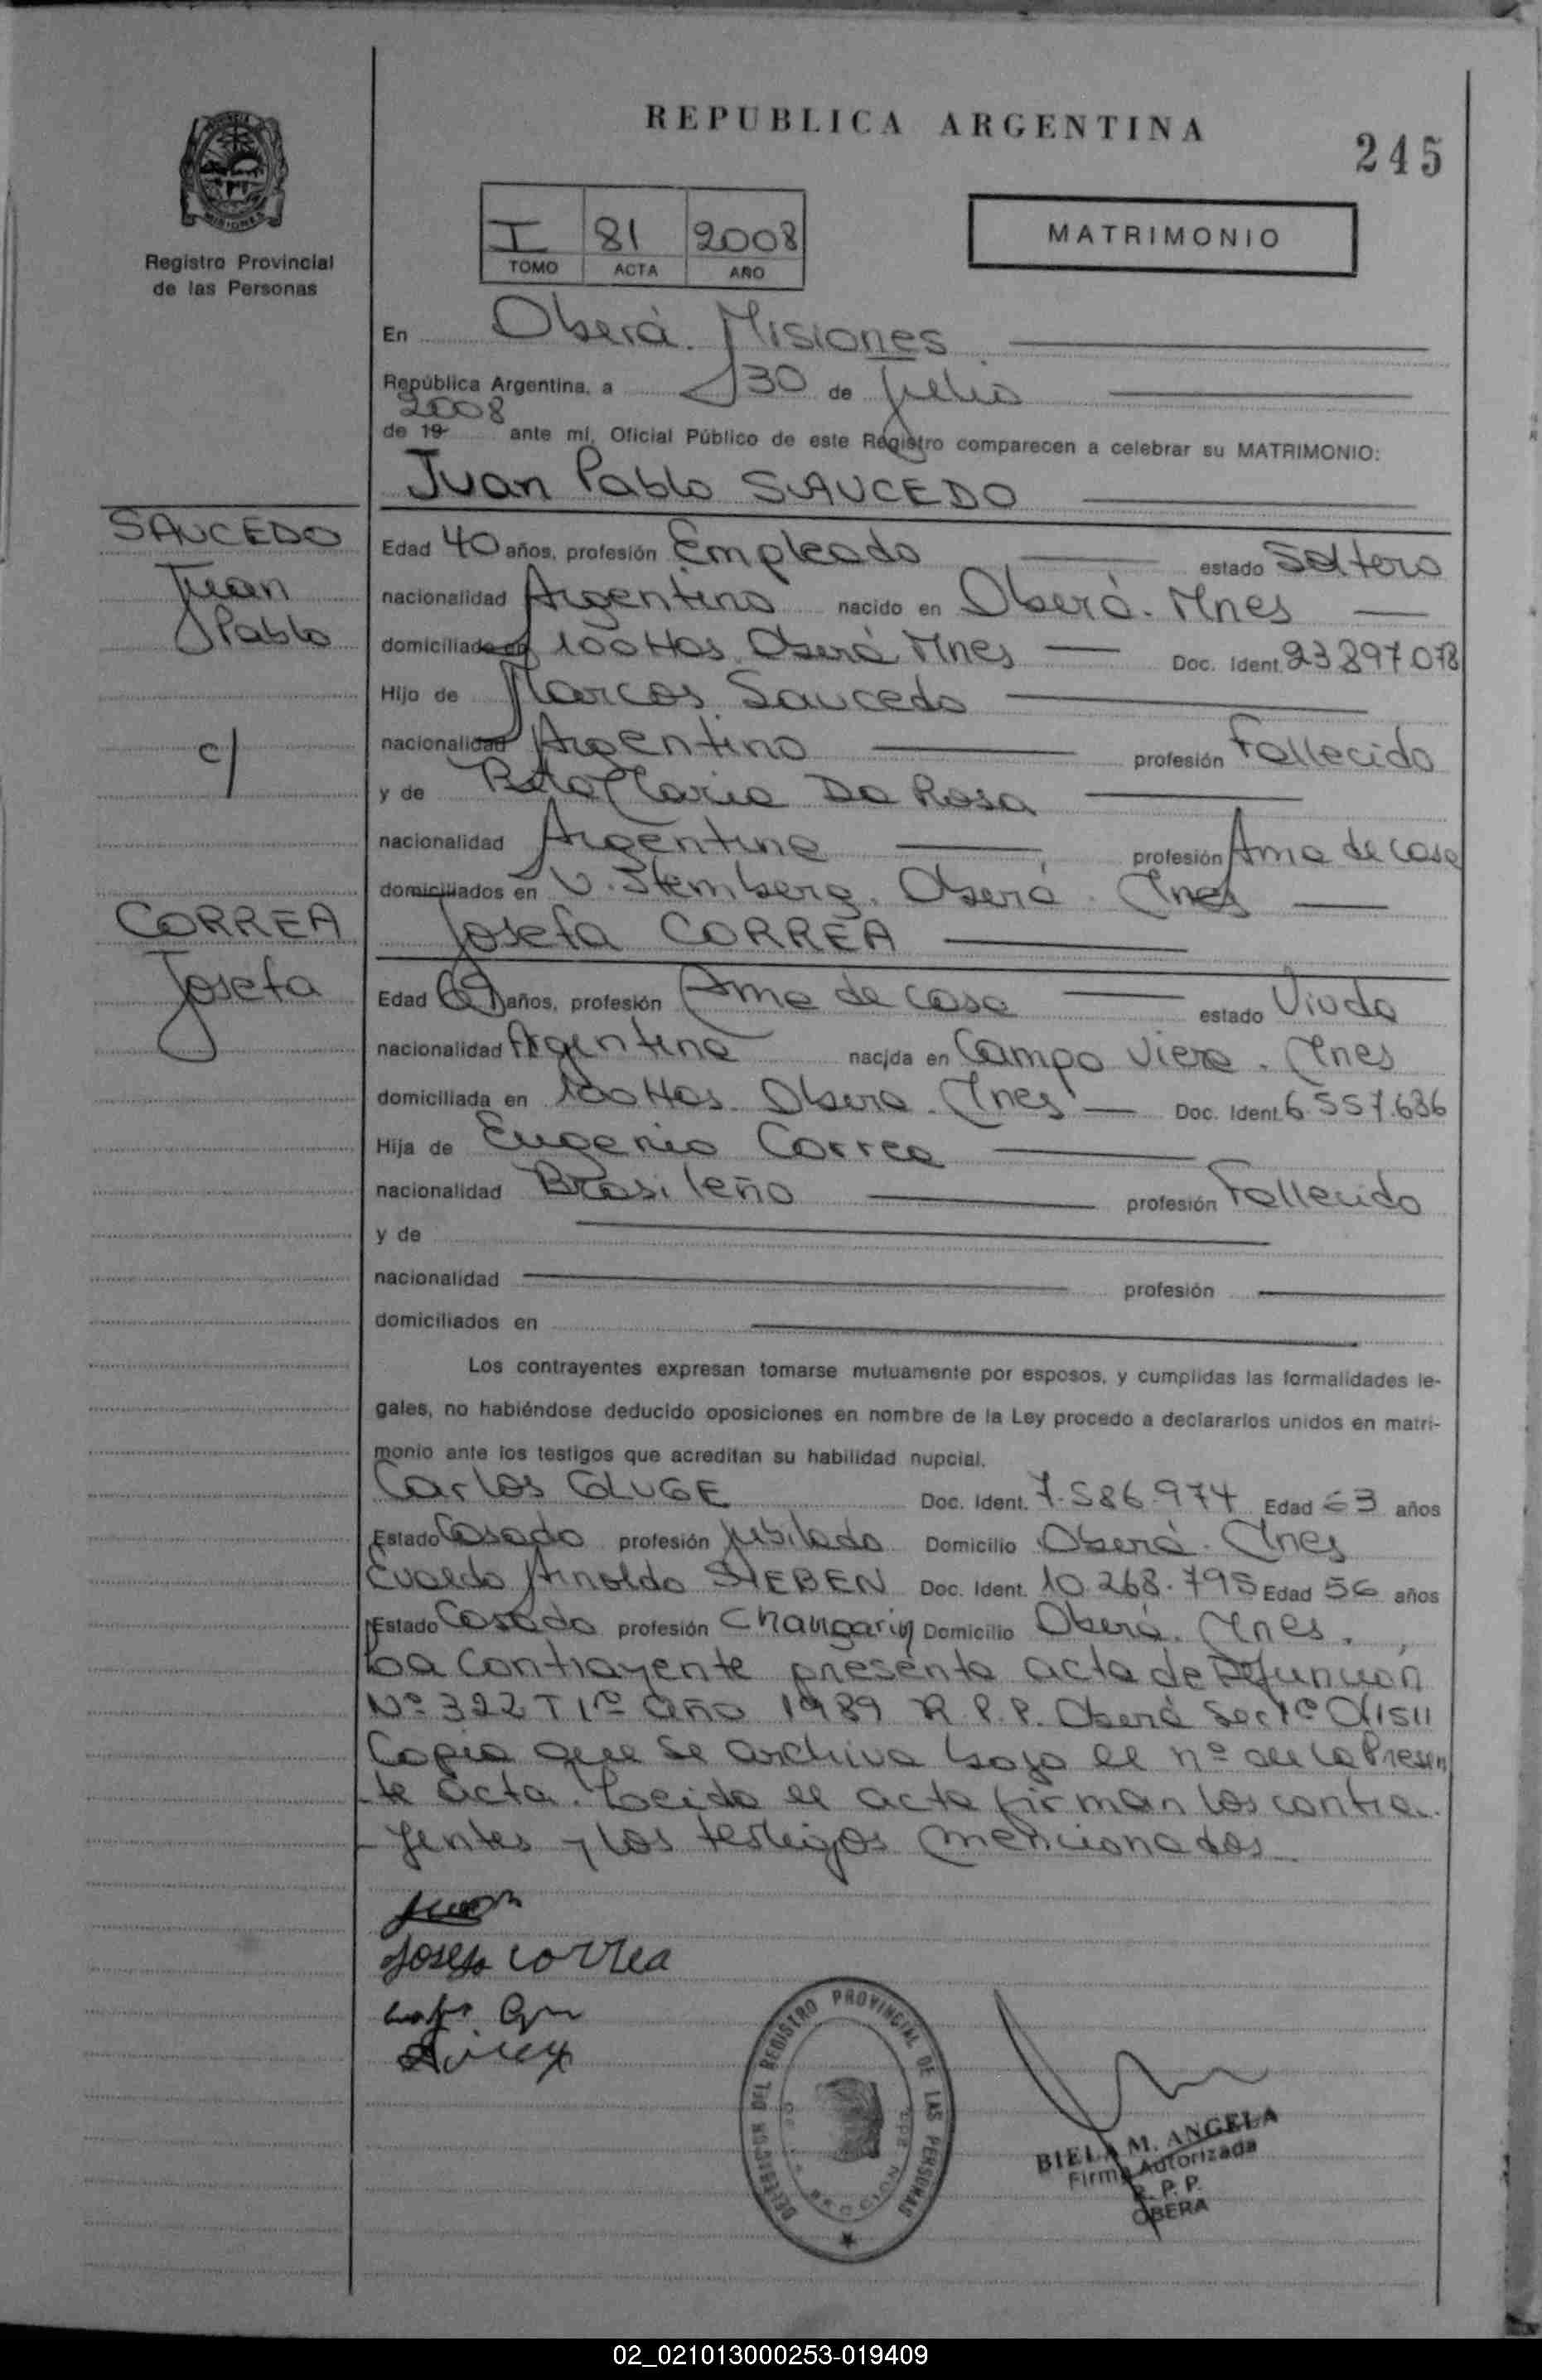 REPUBLICA ARGENTINA
245
MISIONES
Registro Provincial
de las Personas
I 81 2008
TOMO ACTA AÑO
MATRIMONIO
En Oberá. Misiones
República Argentina, a 30 de Julio
2008
de 19 ante mí, Oficial Público de este Registro comparecen a celebrar su MATRIMONIO:
Juan Pablo SAUCEDO
SAUCEDO
Juan
Pablo
c/
CORREA
Josefa
Edad 40 años, profesión Empleado estado Soltero
nacionalidad Argentino nacido en Oberá. Mnes
domiciliado en 100 Has. Oberá Mnes Doc. Ident. 23897.078
Hijo de Marcos Saucedo
nacionalidad Argentino profesión Fallecido
y de Maria Da Rosa
nacionalidad Argentina profesión Ama de casa
domiciliados en V. Stemberg. Oberá. Mnes
Josefa CORREA
Edad años, profesión Ama de casa estado Viuda
nacionalidad Argentina nacida en Campo Viera. Mnes
domiciliada en 100 Has. Obera. Mnes Doc. Ident. 6.557.686
Hija de Eugenio Correa
nacionalidad Brasileño profesión Fallecido
y de
nacionalidad profesión
domiciliados en
Los contrayentes expresan tomarse mutuamente por esposos, y cumplidas las formalidades le-
gales, no habiéndose deducido oposiciones en nombre de la Ley procedo a declararlos unidos en matri-
monio ante los testigos que acreditan su habilidad nupcial.
Carlos GLUGE Doc. Ident. 7.586.974 Edad 63 años
Estado Casado profesión Jubilado Domicilio Oberá. Mnes
Evaldo Arnoldo SIEBEN Doc. Ident. 10.268.795 Edad 56 años
Estado Casado profesión Changarin Domicilio Oberá. Mnes.
La Contrayente presenta acta de Defunción
Nº 322 T 1º año 1989 R.P.P. Oberá Sec 1º
Copia que se archiva bajo el nº de la Presen
te acta. Leida el acta firman los contra
yentes y los testigos mencionados
Juan
Josefa correa
DELEGACION DEL REGISTRO PROVINCIAL DE LAS PERSONAS
BIELA M. ANGELA
Firma Autorizada
R. P. P.
OBERA
02_021013000253-019409